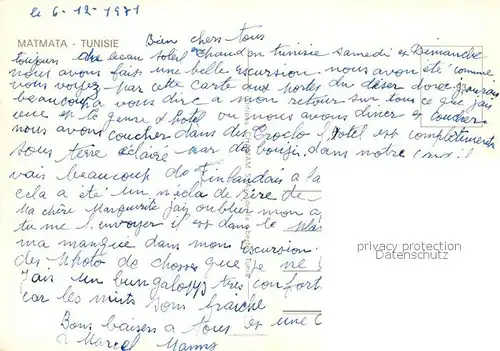 le 6-12-1971
MATMATA - TUNISIE
Bien chers tous
toujours du beau soleil chaud en tunisie samedi et Dimanche
nous avons fait une belle excursion. nous avons été comme
vous voyez par cette carte aux portes du déser donc j'aurais
beaucoup a vous dire a mon retour sur tous ce que j'ais
vue et le genre d hotel ou nous avons diner et coucher
nous avons coucher dans des Hotel est complètement
sous terre éclairé par des bougis. dans notre car il
vais beaucoup de Finlandais a la
cela a été un de rire de
Ma chère Marguerite jais oublier mon a
tu me l envoyer il est dans le
ma manque dans mon excursion.
des photo de choses que je ne
Jais un bungalop très confort
car les nuits sons fraiche
Bons baisers a tous et une
Marcel Manny
privacy protection
Datenschutz